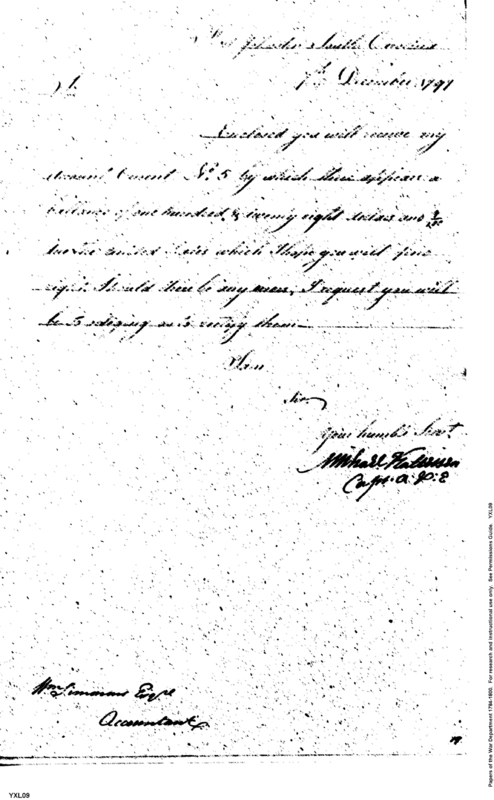 Fort Johnston South Carolina
7th December 1797
Sir.
Enclosed you will receive my
Account Current No. 5 by which there appears a
balance of one hundred & twenty eight dollars and
due the United States which I hope you will find
right. Should there be any errors, I request you will
be so obliging as to rectify them
I am
Sir
your humbe. Servt.
Michael Kalteisen
Capt. A. & E
Wm Simmons Esqr
Accountant
YXL09
Papers of the War Department 1784-1800. For research and instructional use only. See Permissions Guide. YXL09